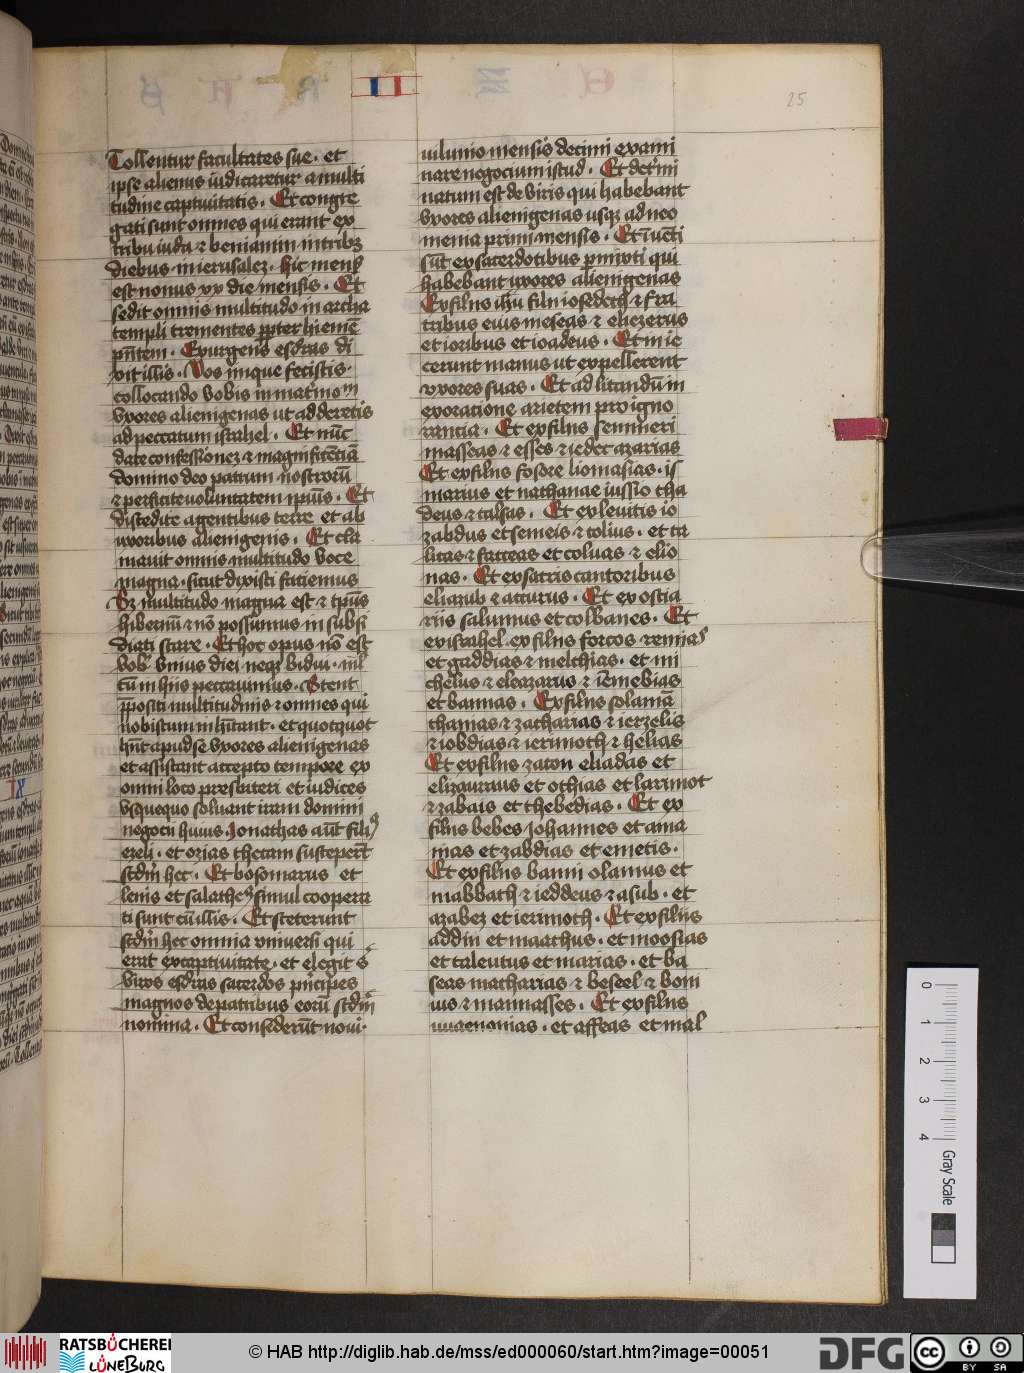 II
25
Tollentur facultates sue. et
ipse alienus iudicaretur a multi
tudine captiuitatis. Et congre
gati sunt omnes qui erant ex
tribu iuda ⁊ beniamin in tribꝫ
diebus in ierusalez. hic menẜ
est nonus xx die mensis. Et
sedit omnis multitudo in archa
templi trementes ꝓpter hiemē
pn̄tem. Exurgens esdras di
xit illis. Vos inique fecistis.
collocando vobis in mat͛imoⁿⁱ
vxores alienigenas ut adderetis
ad peccatum israhel. Et nūc
date confessionez ⁊ magnificētiā
domino deo patrum nostrorū
⁊ perficite voluntatem ip̄ius. Et
discedite a gentibus terre et ab
uxoribus alienigenis. Et cla
mauit omnis multitudo voce
magna. sicut dixisti faciemus
Sꝫ multitudo magna est ⁊ tp̄us
hibernū ⁊ nō possumus in subsi
diati stare. Et hoc opus nō est
vob̄ vnius diei neqꝫ bidui. ml
tū in hiis peccauimus. Stent
p̄positi multitudinis ⁊ omnes qui
uobiscum inh̄itant. et quotquot
hn̄t apud se vxores alienigenas
et assistant accepto tempore ex
omni loco presbiteri et iudices
vsquequo soluant iram domini
negocii huius. Jonathas aūt filiꝰ
ezeli. et ozias thecam susceperūt
scd̄m hec. Et bosomarus et
leuis et salatheꝰ simul coopera
ti sunt cū illis. Et steterunt
scd̄m hec omnia vniuersi qui
erāt ex captiuitate. et elegit s̄
viros esdras sacerdos pn̄cipes
magnos de patribus eorū scd̄m
nomina. Et consederūt noui
uilunio mensis decimi exami
nare negocium istud. Et det͛mi
natum est de viris qui habebant
vxores alienigenas usqꝫ ad neo
menia primi mensis. Et īuēti
sūt ex sacerdotibus ꝑmixti qui
habebant uxores alienigenas
Ex filiis ih̄u filii iosedech ⁊ fra
tribus eius meseas ⁊ eliezerus
et ioribus et ioadeus. Et in ie
cerunt manus ut expellerent
vxores suas. Et ad litandū in
exoratione arietem pro igno
rancia. Et ex filiis semmeri
masseas ⁊ esses ⁊ iedec azarias
Et ex filiis fosore liomasias. is
marius et nathanae iussio tha
deus ⁊ talsas. Et ex leuitis io
zabdus et semeis ⁊ colius. et ca
litas ⁊ facteas et coluas ⁊ elio
nas. Et ex sacris cantoribus
eliazub ⁊ acturus. Et ex ostia
riis salumus et tolbanes. Et
ex israhel. ex filiis forcos ⁊ remias
et gaddias ⁊ melchias. et mi
chelus ⁊ eleazarus ⁊ iēmebias
et bannas. Ex filiis solamā
thamas ⁊ zacharias ⁊ ierzelis
⁊ iobdias ⁊ ierimoth ⁊ helias
Et ex filiis zaton eliadas et
eliazurus et othias et larimot
⁊ zabais et thebedias. Et ex
filiis bebes Johannes et ama
mas et zabdias et emetis.
Et ex filiis banni olamus et
mabbath ⁊ ieddeus ⁊ asub. et
azabez et ierimoth. Et ex filiis
addin et maathus. et moosias
et caleutus et marias. et ba
seas matharias ⁊ beseel ⁊ bom
ius ⁊ mannasses. Et ex filiis
nuaenonias. et affeas et mal
0 1 2 3 4
Gray Scale
RATSBÜCHEREI
LÜNEBURG
© HAB http://diglib.hab.de/mss/ed000060/start.htm?image=00051
DFG
cc BY SA